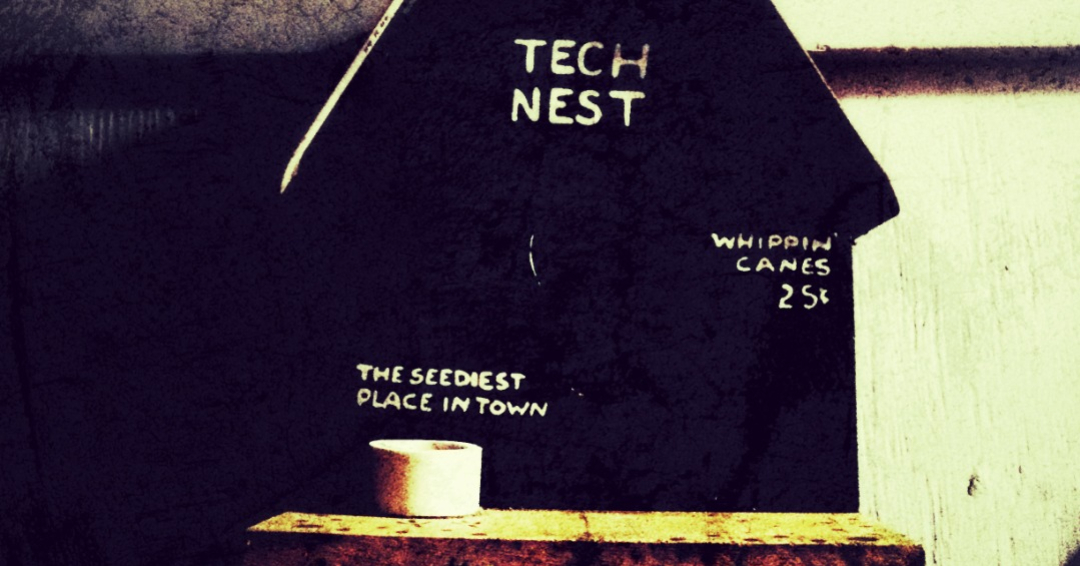 TECH
NEST
WHIPPIN'
CANES
25¢
THE SEEDIEST
PLACE IN TOWN